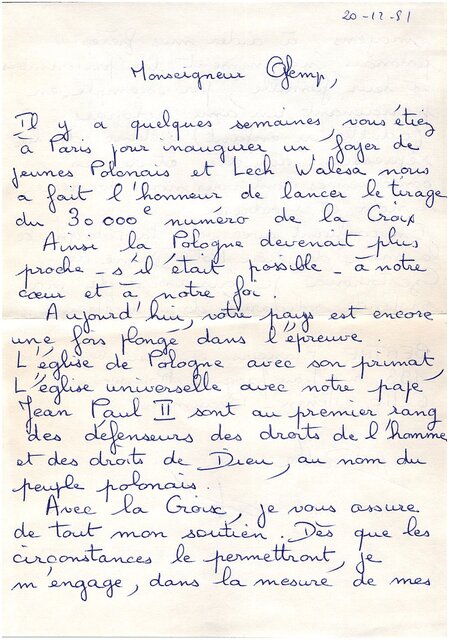 20-12-81
Monseigneur Glemp,
Il y a quelques semaines, vous étiez
à Paris pour inaugurer un foyer de
jeunes Polonais et Lech Walesa nous
a fait l'honneur de lancer le tirage
du 30 000e numéro de la Croix
Ainsi la Pologne devenait plus
proche - s'il était possible - à notre
cœur et à notre foi.
Aujourd'hui, votre pays est encore
une fois plongé dans l'épreuve.
L'église de Pologne avec son primat,
L'église universelle avec notre pape
Jean Paul II sont au premier rang
des défenseurs des droits de l'homme
et des droits de Dieu, au nom du
peuple polonais.
Avec la Croix, je vous assure
de tout mon soutien. Dès que les
circonstances le permettront, je
m'engage, dans la mesure de mes